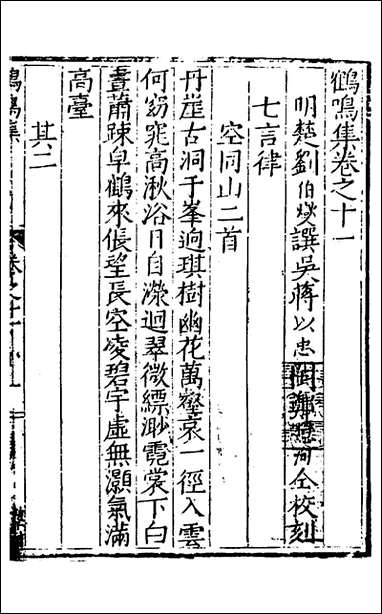 鶴鳴集卷之十一
明楚劉伯燮譔吳蔣以忠 仝校刻
七言律
空同山二首
丹崖古洞千峯逈琪樹幽花萬壑哀一徑入雲
何窈窕高湫浴日自濚迴翠微縹渺霓裳下白
晝蕭踈皁鶴來倀望長空凌碧宇虛無灝氣滿
高臺
其二
鶴鳴集
卷之十一